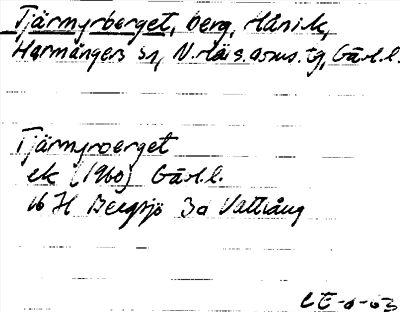 Tjärmyrberget, berg, Hånick,
Harmångers sn, N. Häls. doms. tg, Gävl. l.
Tjärmyrberget
ek (1960) Gävl. l.
16 H Bergsjö 3a Vattlång